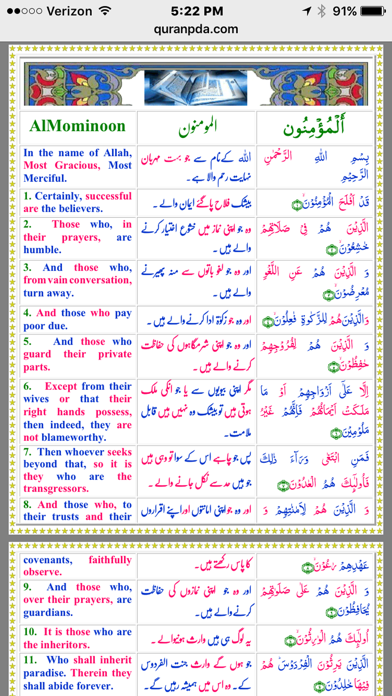 Verizon 5:22 PM 91%
quranpda.com
AlMominoon
المومنون
أَلْمُؤْمِنُون
In the name of Allah,
Most Gracious, Most
Merciful.
اللہ کےنام سے جو بہت مہربان
نہایت رحم والا ہے۔
بِسْمِ اللهِ الرَّحْمٰنِ
الرَّحِيْمِ
1. Certainly, successful
are the believers.
بیشک فلاح پاگئے ایمان والے ۔
قَدْ اَفْلَحَ الْمُؤْمِنُوْنَ
2. Those who, in
their prayers, are
humble.
وہ جو اپنی نماز میں خشوع اختیار کرنے
والے ہیں۔
الَّذِيْنَ هُمْ فِىْ صَلَاتِهِمْ
خٰشِعُوْنَ
3. And those who,
from vain conversation,
turn away.
اور وہ جو لغو باتوں سے منہ پھیرنے
والے ہیں۔
وَ الَّذِيْنَ هُمْ عَنِ اللَّغْوِ
مُعْرِضُوْنَ
4. And those who pay
poor due.
اور وہ جو زکوٰۃ ادا کرنے والے ہیں ۔
وَالَّذِيْنَ هُمْ لِلزَّكٰوةِ فٰعِلُوْنَ
5. And those who
guard their private
parts.
اور وہ جو اپنی شرمگاہوں کی حفاظت
کرنے والے ہیں۔
وَ الَّذِيْنَ هُمْ لِفُرُوْجِهِمْ
حٰفِظُوْنَ
6. Except from their
wives or that their
right hands possess,
then indeed, they are
not blameworthy.
مگر اپنی بیویوں سے یا جو انکی ملک
ہوتی ہیں تو بیشک وہ نہیں ہیں قابل
ملامت۔
اِلَّا عَلٰٓى اَزْوَاجِهِمْ اَوْ مَا
مَلَكَتْ اَيْمَانُهُمْ فَاِنَّهُمْ غَيْرُ
مَلُوْمِيْنَ
7. Then whoever seeks
beyond that, so it is
they who are the
transgressors.
پس جو چاہے اس کے سوا تو وہی ہیں
جو ہیں حد سے نکل جانے والے ۔
فَمَنِ ابْتَغٰى وَرَآءَ ذٰلِكَ
فَاُولٰٓئِكَ هُمُ الْعٰدُوْنَ
8. And those who, to
their trusts and their
اور وہ جو اپنی امانتوں اور اپنے اقراروں
وَ الَّذِيْنَ هُمْ لِاَمٰنٰتِهِمْ وَ
covenants, faithfully
observe.
کا پاس رکھتے ہیں۔
عَهْدِهِمْ رٰعُوْنَ
9. And those who,
over their prayers, are
guardians.
اور وہ جو اپنی نمازوں کی حفاظت
کرنے والے ہیں۔
وَ الَّذِيْنَ هُمْ عَلٰى صَلَوٰتِهِمْ
يُحَافِظُوْنَ
10. It is those who are
the inheritors.
یہ لوگ ہی ہیں وارث ہونیوالے ۔
اُولٰٓئِكَ هُمُ الْوٰرِثُوْنَ
11. Who shall inherit
paradise. Therein they
shall abide forever.
جو ہوں گے وارث جنت الفردوس
کے۔ وہ اس میں ہمیشہ رہیں گے۔
الَّذِيْنَ يَرِثُوْنَ الْفِرْدَوْسَ هُمْ
فِيْهَا خٰلِدُوْنَ